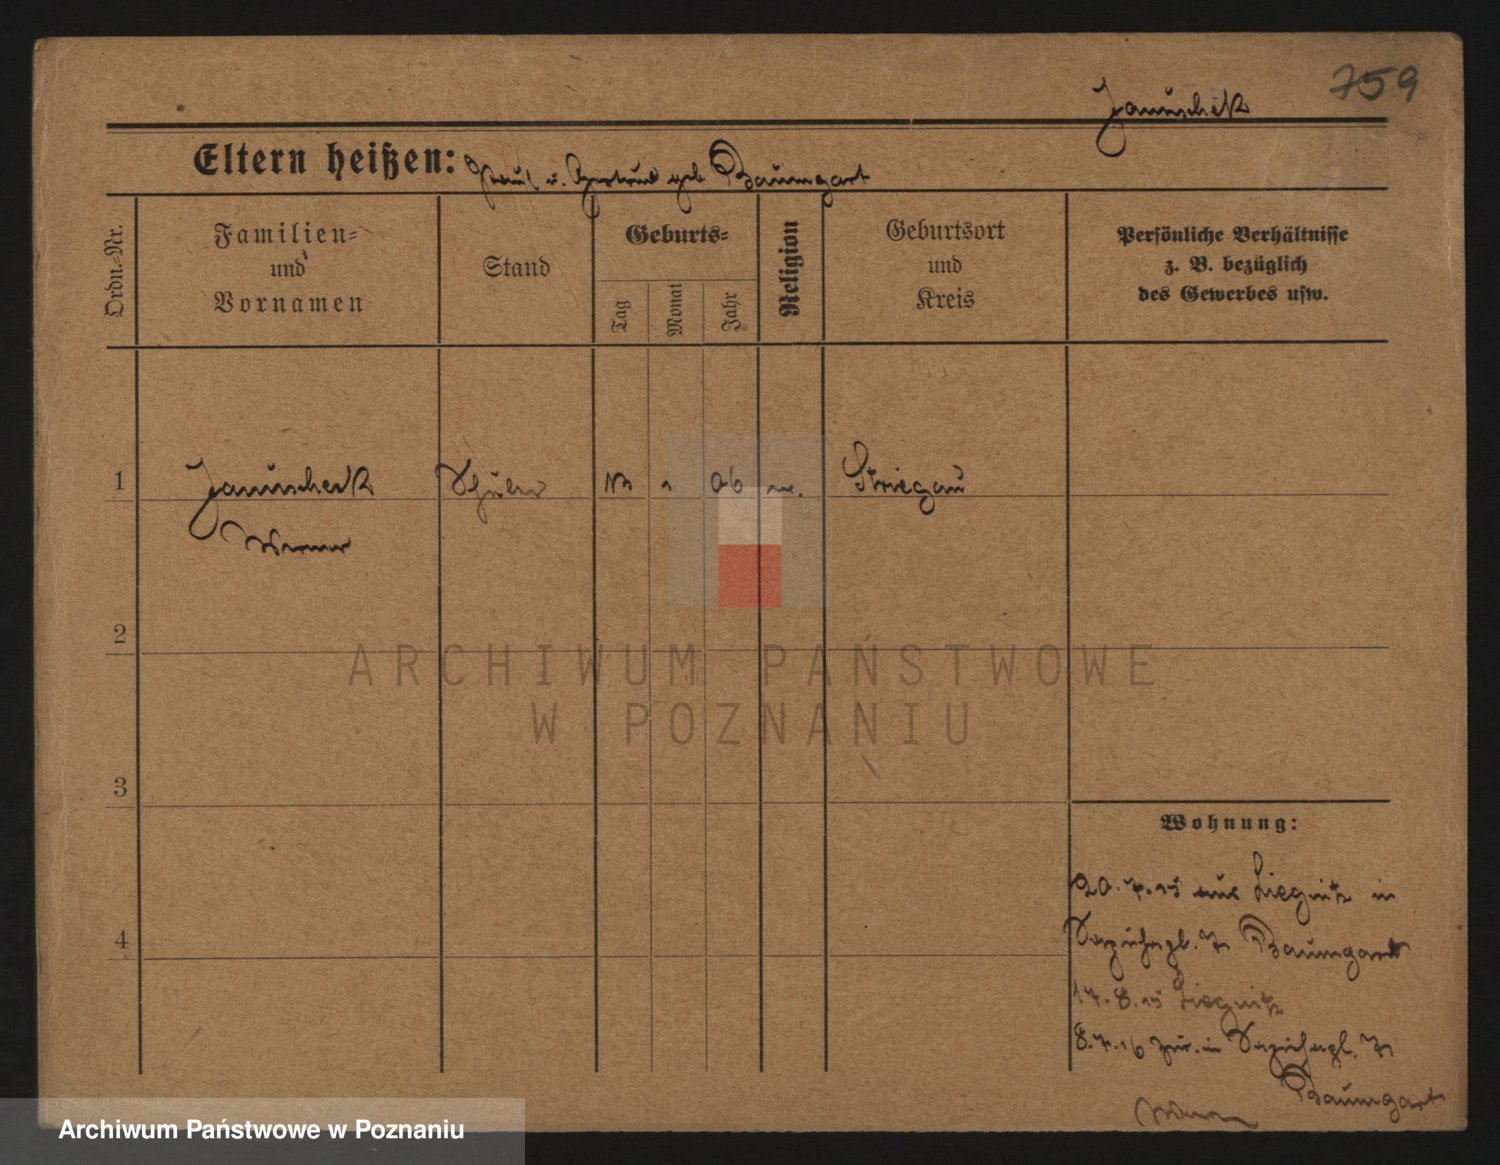 759
Januscheck
Eltern heißen: Paul u. Gertrud geb Baumgart
Ordn.-Nr.
Familien- und Vornamen
Stand
Geburts-
Tag
Monat
Jahr
Religion
Geburtsort und Kreis
Persönliche Verhältnisse z. B. bezüglich des Gewerbes usw.
1
Januscheck Schüler 06 Striegau
Werner
2
ARCHIWUM PAŃSTWOWE
W POZNANIU
3
Wohnung:
20.7.15 aus Liegnitz in
Sapiehapl. Baumgart
4
17.8.15 Liegnitz
8.7.16 zur. in Sapiehapl.
Baumgart
Archiwum Państwowe w Poznaniu